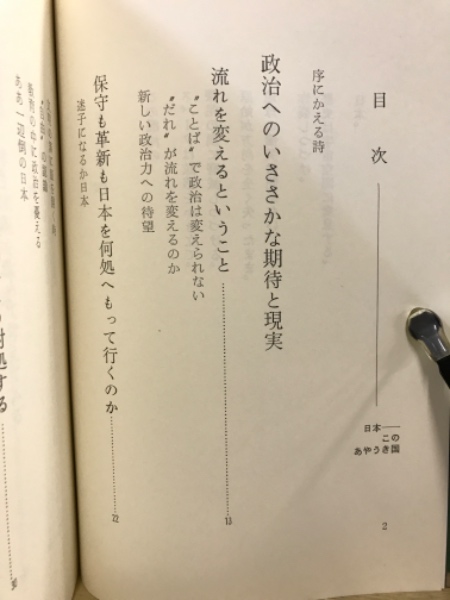 目次
日本――
この
あやうき国
2
序にかえる詩
政治へのいささかな期待と現実
流れを変えるということ……13
〝ことば〟で政治は変えられない
〝だれ〟が流れを変えるのか
新しい政治力への待望
保守も革新も日本を何処へもって行くのか……22
迷子になるか日本
教育の中に政治を憂える
ああ一辺倒の日本
対処する……30